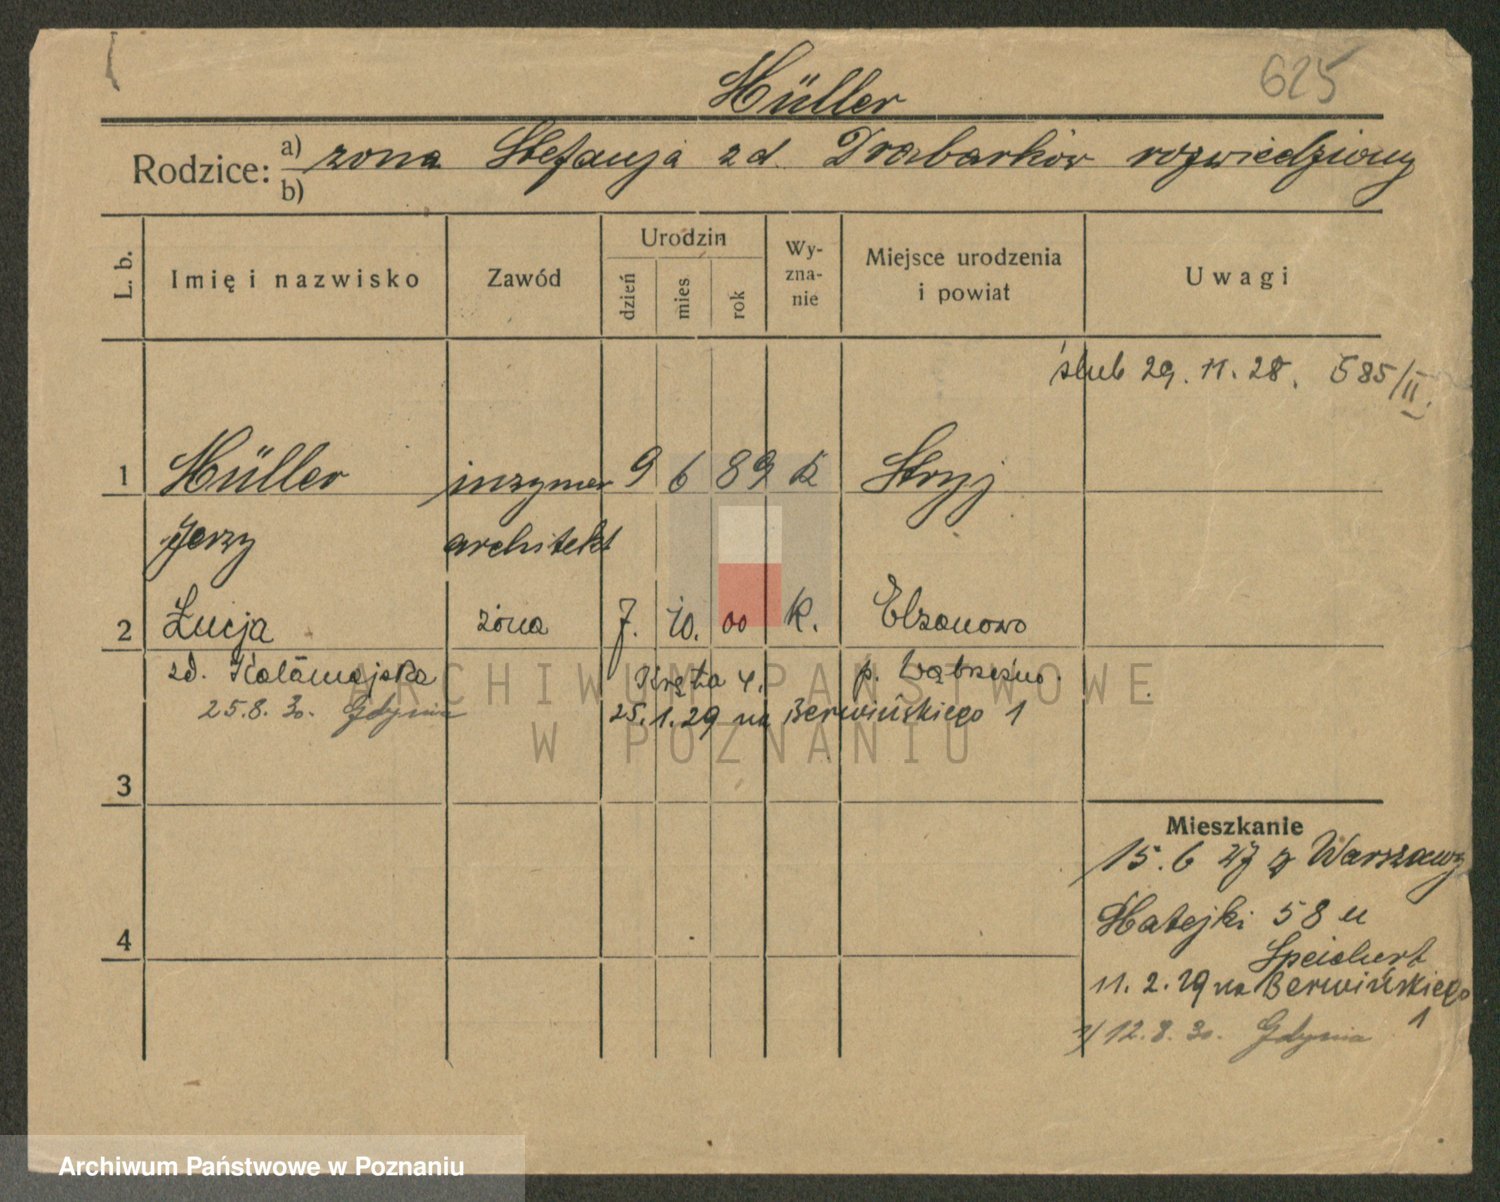 625
Müller
Rodzice: a) żona Stefanja zd. Drabarków rozwiedziony
b)
L. b.
Imię i nazwisko
Zawód
Urodzin
dzień
mies
rok
Wy-
zna-
nie
Miejsce urodzenia
i powiat
Uwagi
ślub 29. 11. 28. 585/II.
1 Müller inżynier 9 6 89 k Stryj
Jerzy architekt
2 Łucja żona 7. 10. 00 k. Elzanowo
zd. Kołāmajska Kręta 4. p. Wąbrzeźno.
25.8.30. Gdynia 25.1.29 na Berwińskiego 1
3
4
Mieszkanie
15. 6 27 z Warszawy
Matejki 58 u
Speichert
11. 2. 29 na Berwińskiego
1
1/ 12. 8. 30. Gdynia
ARCHIWUM PAŃSTWOWE
W POZNANIU
Archiwum Państwowe w Poznaniu